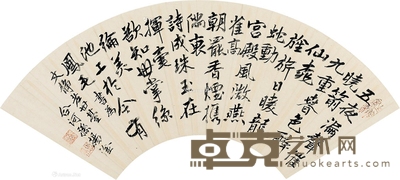 五夜漏聲催
曉箭
九重春色醉
仙桃
旌旗日暖龍
蛇動
宮殿風微燕
雀高
朝罷香煙攜
滿袖
詩成珠玉在
揮毫
欲知世掌絲
綸美
池上於今有
鳳毛
卓克艺术网
zhuokearts.com